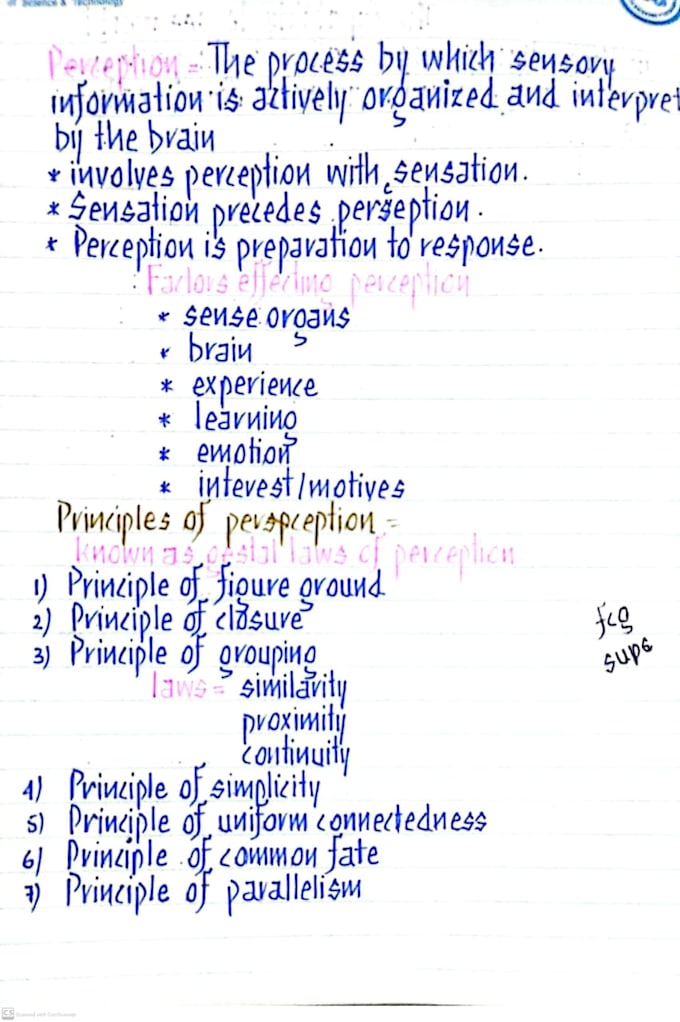 of Science & Technology
Perception = The process by which sensory
information is actively organized and interpret
by the brain
* involves perception with sensation.
* Sensation precedes perseption.
* Perception is preparation to response.
: Factors effecting perception
* sense organs
* brain
* experience
* learning
* emotion
* interest/motives
Principles of perspception =
known as gestal laws of perception
1) Principle of figure ground
2) Principle of closure
fcg
3) Principle of grouping
sups
laws = similarity
proximity
continuity
4) Principle of simplicity
5) Principle of uniform connectedness
6) Principle of common fate
7) Principle of parallelism
CS Scanned with CamScanner